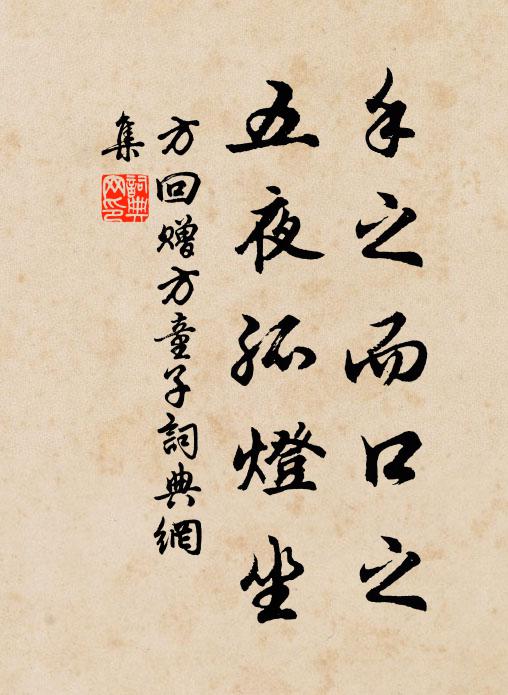 手之而口之
五夜孤燈坐
方回贈方童子詞典網
集
詞典
网印